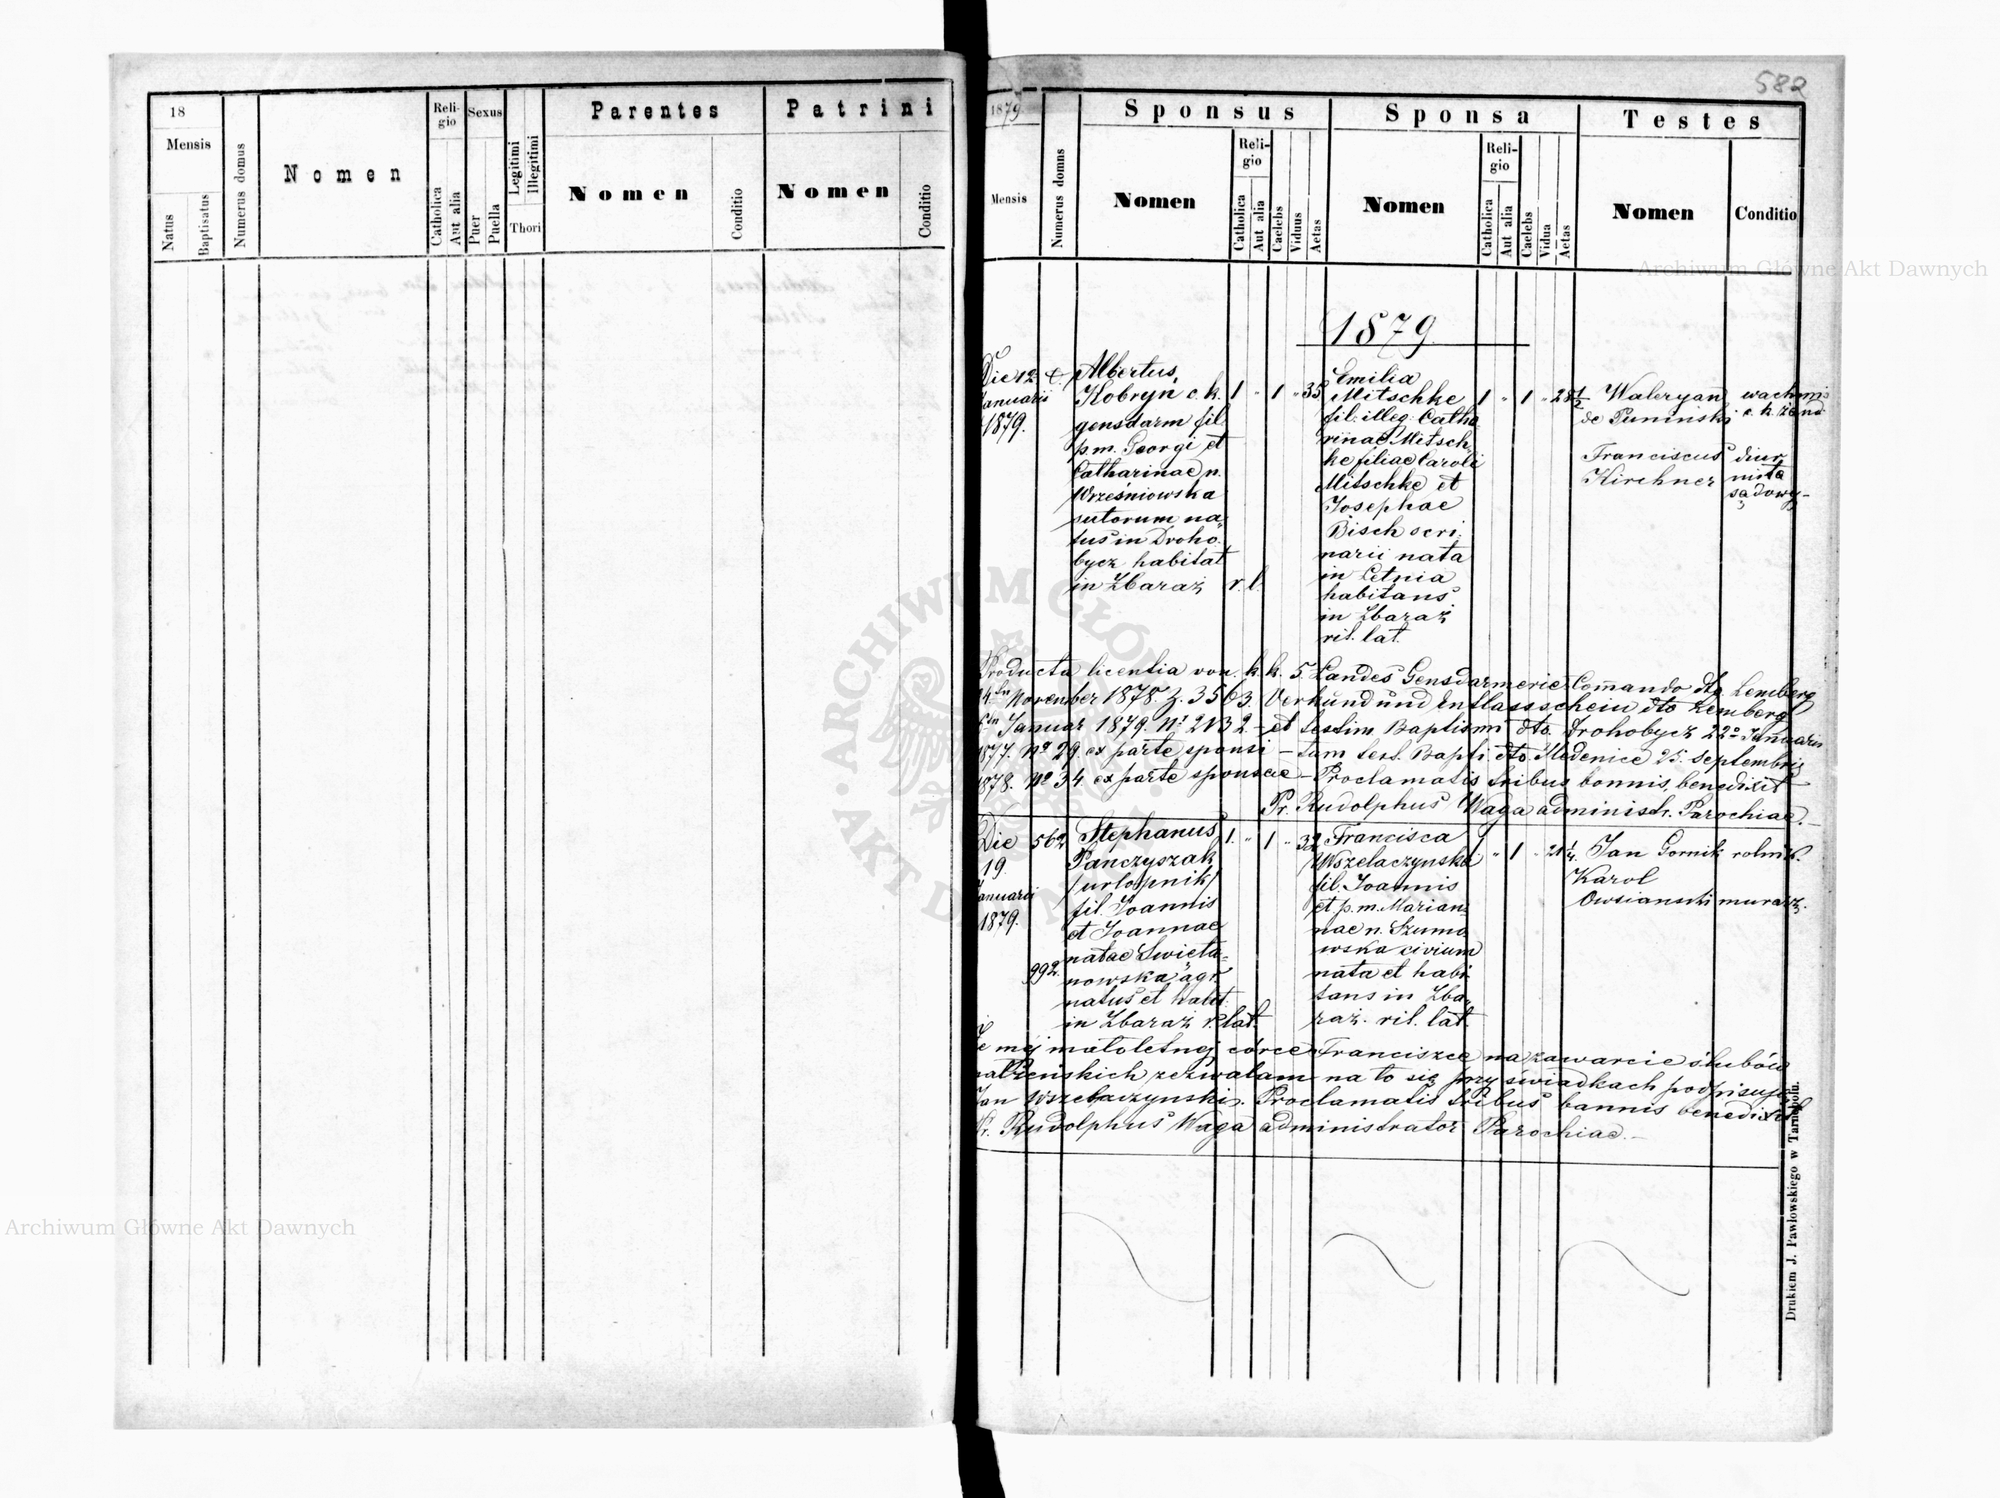 18
Mensis
Natus
Baptisatus
Numerus domus
Nomen
Reli-
gio
Catholica
Aut alia
Sexus
Puer
Puella
Legitimi
Illegitimi
Thori
Parentes
Nomen
Conditio
Patrini
Nomen
Conditio
582
1879
Mensis
Numerus domns
Sponsus
Nomen
Reli-
gio
Catholica
Aut alia
Caelebs
Viduus
Aetas
Sponsa
Nomen
Reli-
gio
Catholica
Aut alia
Caelebs
Vidua
Aetas
Testes
Nomen
Conditio
1879.
Die 12
Januarii
1879.
Albertus
Kobryń c. k.
gensdarm fil.
p.m. Georgi et
Catharinae n.
Wrześniowska
sutorum na-
tus in Droho-
bycz habitat
in Zbaraż r. l.
1 " 1 " 35
Emilia
Mitschke
fil. illeg. Catha
rinae Mitsch-
ke filiae Caroli
Mitschke et
Josephae
Bisch scri-
narii nata
in Letnia
habitans
in Zbaraż
rit. lat.
1 " 1 " 28 1/2
Waleryan
de Puminski
wachmis
c. k. żand
Franciscus
Kirchner
diur
nista
sądowy
Producta licentia von k. k. 5. Landes Gensdarmerie Commando dto Lemberg
14ten November 1878. Z. 3563. Verkund und Entlassschein dto Lemberg
6ten Januar 1879. Nr 2132 - et testim Baptismi dto. Drohobycz 22a Januarii
1877. No 29 ex parte sponsi - tum test. Bapti. dto. Medenice 25. Septembris
1878. No 34. ex parte sponsae - Proclamatis tribus bannis, benedixit
Pr. Rudolphus Waga administr. Parochiae. -
Die
19.
Januarii
1879.
562
992.
Stephanus
Panczyszak
/urlopnik/
fil. Joannis
et Joannae
natae Swieta-
nowska agr.
natus et habit.
in Zbaraż r. lat.
1. " 1 " 32
Francisca
Wszelaczynska
fil. Joannis
et p.m. Marian-
nae n. Szumo
wska civium
nata et habi
tans in Zba-
raż. rit. lat.
1 " 1 " 21 1/4.
Jan Gornik rolnik.
Karol
Owsianski murarz.
Że mej małoletnej córce Franciszce na zawarcie ślubów
małżeńskich zezwalam na to się przy świadkach podpisuję
Jan Wszelaczynski. Proclamatis tribus bannis benedixit
Pr. Rudolphus Waga administrator Parochiae. -
Drukiem J. Pawłowskiego w Tarnopolu.
Archiwum Główne Akt Dawnych
Archiwum Główne Akt Dawnych
ARCHIWUM GŁÓWNE AKT DAWNYCH